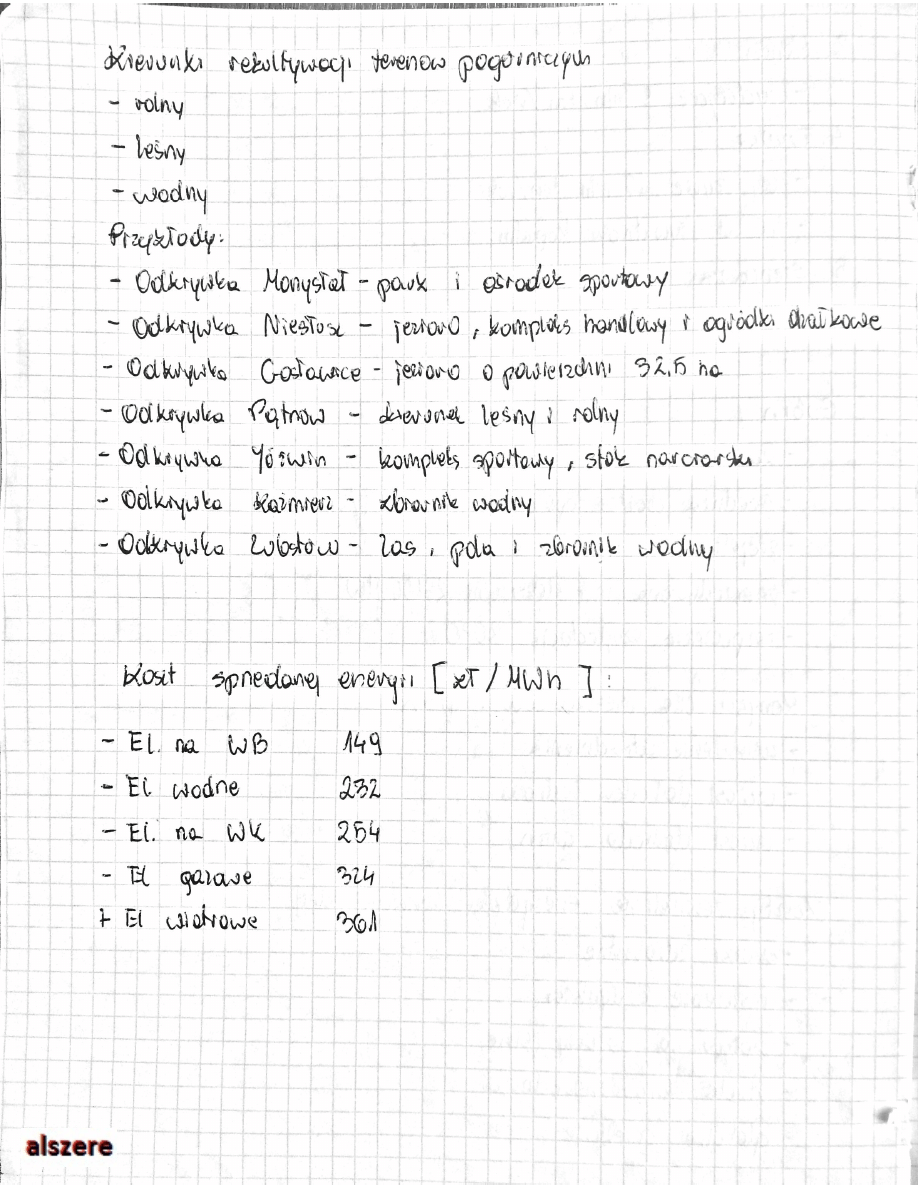 Kierunki rekultywacji terenów pogórniczych
- rolny
- leśny
- wodny
Przykłady:
- Odkrywka Morzysław - park i ośrodek sportowy
- Odkrywka Niesłusz - jezioro, kompleks handlowy i ogródki działkowe
- Odkrywka Gosławice - jezioro o powierzchni 32,5 ha
- Odkrywka Pątnów - kierunek leśny i rolny
- Odkrywka Jóźwin - kompleks sportowy, stok narciarski
- Odkrywka Kazimierz - zbiornik wodny
- Odkrywka Lubstów - las, pola i zbiornik wodny
Koszt sprzedanej energii [zł/MWh]:
- El. na WB 149
- El wodne 232
- El. na WK 254
- El gazowe 324
+ El wiatrowe 361
alszere